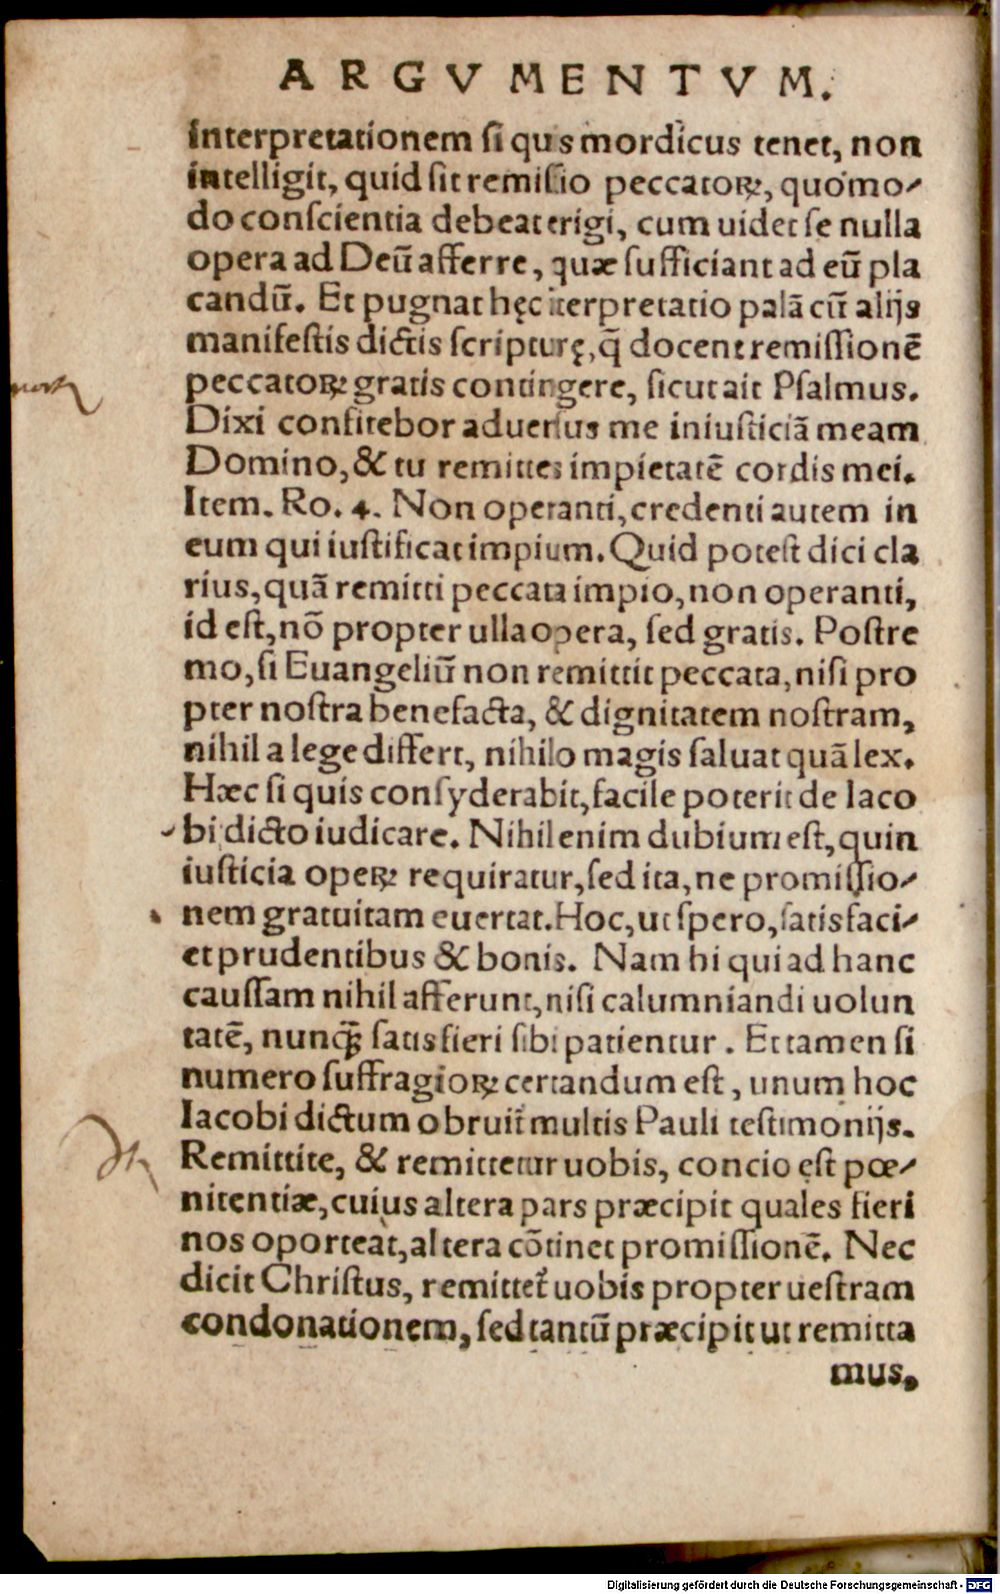 ARGVMENTVM.
interpretationem si quis mordicus tenet, non
intelligit, quid sit remissio peccatoꝝ, quomo-
do conscientia debeat erigi, cum uidet se nulla
opera ad Deū afferre, quæ sufficiant ad eū pla
candū. Et pugnat hęc iterpretatio palā cū alijs
manifestis dictis scripturę, q̄ docent remissionē
peccatoꝝ gratis contingere, sicut ait Psalmus.
Dixi confitebor aduersus me iniusticiā meam
Domino, & tu remittes impietatē cordis mei.
Item. Ro. 4. Non operanti, credenti autem in
eum qui iustificat impium. Quid potest dici cla
rius, quā remitti peccata impio, non operanti,
id est, nō propter ulla opera, sed gratis. Postre
mo, si Euangeliū non remittit peccata, nisi pro
pter nostra benefacta, & dignitatem nostram,
nihil a lege differt, nihilo magis saluat quā lex.
Hæc si quis consyderabit, facile poterit de Iaco
bi dicto iudicare. Nihil enim dubium est, quin
iusticia operꝝ requiratur, sed ita, ne promissio-
nem gratuitam euertat. Hoc, ut spero, satisfaci-
et prudentibus & bonis. Nam hi qui ad hanc
caussam nihil afferunt, nisi calumniandi uolun
tatē, nunq̄ satisfieri sibi patientur. Et tamen si
numero suffragioꝝ certandum est, unum hoc
Iacobi dictum obruit̃ multis Pauli testimonijs.
Remittite, & remittetur uobis, concio est pœ-
nitentiæ, cuius altera pars præcipit quales fieri
nos oporteat, altera cōtinet promissionē. Nec
dicit Christus, remittet̃ uobis propter uestram
condonationem, sed tantū præcipit ut remitta
mus,
Digitalisierung gefördert durch die Deutsche Forschungsgemeinschaft - DFG